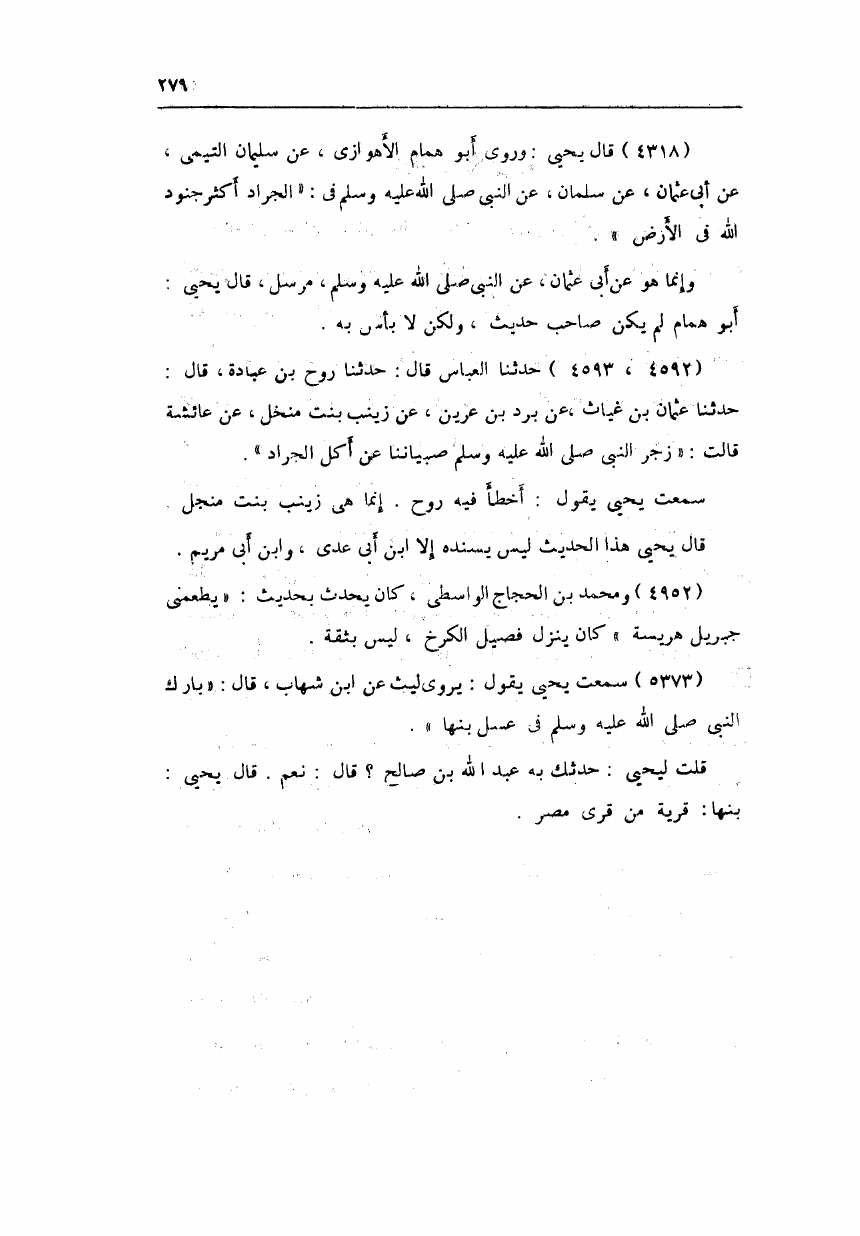 ٢٧٩
( ٤٣١٨ ) قال يحيى : وروى أبو همام الأهوازى ، عن سليمان التيمى ،
عن أبى عثمان ، عن سلمان ، عن النبى صلى الله عليه وسلم فى : « الجراد أكثر جنود
الله فى الأرض » .
وإنما هو عن أبى عثمان ، عن النبى صلى الله عليه وسلم ، مرسل ، قال يحيى :
أبو همام لم يكن صاحب حديث ، ولكن لا بأس به .
( ٤٥٩٢ ، ٤٥٩٣ ) حدثنا العباس قال : حدثنا روح بن عبادة ، قال :
حدثنا عثمان بن غياث ، عن برد بن عرين ، عن زينب بنت منخل ، عن عائشة
قالت : « زجر النبى صلى الله عليه وسلم صبياننا عن أكل الجراد » .
سمعت يحيى يقول : أخطأ فيه روح . إنما هى زينب بنت منجل .
قال يحيى هذا الحديث ليس يسنده إلا ابن أبى عدى ، وابن أبى مريم .
( ٤٩٥٢ ) ومحمد بن الحجاج الواسطى ، كان يحدث بحديث : « يطعمنى
جبريل هريسة » كان ينزل فصيل الكرخ ، ليس بثقة .
( ٥٣٧٣ ) سمعت يحيى يقول : يروى ليث عن ابن شهاب ، قال : « بارك
النبى صلى الله عليه وسلم فى عسل بنها » .
قلت ليحيى : حدثك به عبد الله بن صالح ؟ قال : نعم . قال يحيى :
بنها : قرية من قرى مصر .